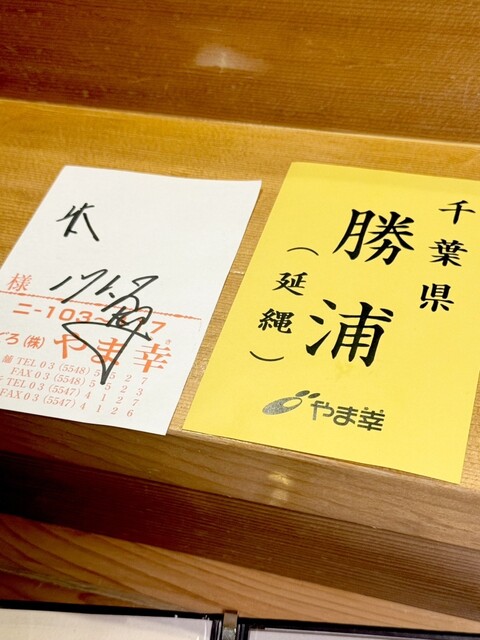 様
ニ-103-
ろ(株)やま幸
TEL 03(5548)5527
FAX 03(5548)5523
TEL 03(5547)4127
FAX 03(5547)4126
千葉県
勝浦
(延縄)
やま幸